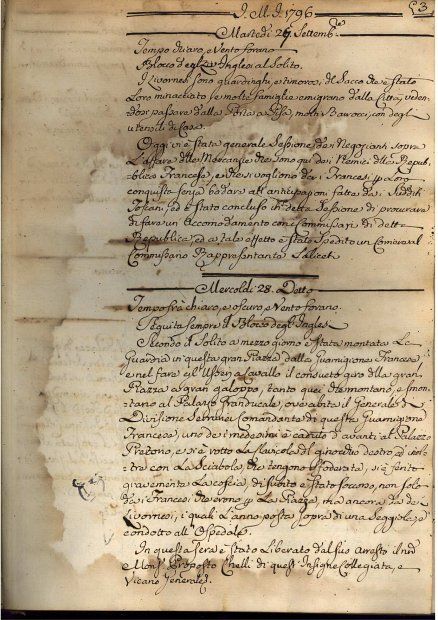 I. M. I. 1796
63
Martedì 27 Settemb.e
Tempo chiaro, e Vento forano
Blocco degl' Inglesi al Solito.
I Livornesi sono guardinghi, e timorosi del Sacco che è stato
Loro minacciato, e molte famiglie emigrano dalla Città, veden-
dosi passare dalla Porta a Pisa, molti Barocci, con degl'
utensili di Casa.
Oggi vi è stata generale Sessione dei Negozianti sopra
L'affare delle Mercanzie che sono qui dei Nemici della Repub-
blica Francese, e che si vogliono dai Francesi p Loro
conquista senza badare all' anticipazioni fatte dai Sudditi
Toscani, ed è stato concluso in detta Sessione di procurare
di fare un Accomodamento con i Commissari di dett.
Repubblica, ed a tale effetto è stato spedito un Corrier al
Commissario Rappresentante Salicet
Mercoldì 28. Detto
Tempo frà chiaro, e oscuro, e Vento forano.
Seguita sempre il Blocco degl' Inglesi
Secondo il Solito a mezzo giorno è stata montata La
Guardia in questa gran Piazza dalla Guarnigione Francese
e nel fare gl' Usseri a Cavallo il consueto giro della gran
Piazza a gran galoppo, tanto quei che montano, e smon-
tano al Palazzo Granducale, ove abita il Generale di
Divisione Serrurier Comandante di questa Guarnigione
Francese, uno dei medesimi è caduto d'avanti al Palazzo
Pretorio, e si è rotto La clavicola del ginocchio destro, ed
tre con La Sciabola, che tengono sfoderata, si è ferito
gravemente La coscia, di subito è stato soccorso, non solo
dai Francesi che erono p La Piazza, ma ancora da dei
Livornesi, i quali L'anno posto sopra di una Seggiola, e
condotto all' Ospedale.
In questa sera è stato Liberato dal suo Arresto il
Mons.r Proposto Chelli di quest' Insigne Collegiata, e
Vicario Generale.